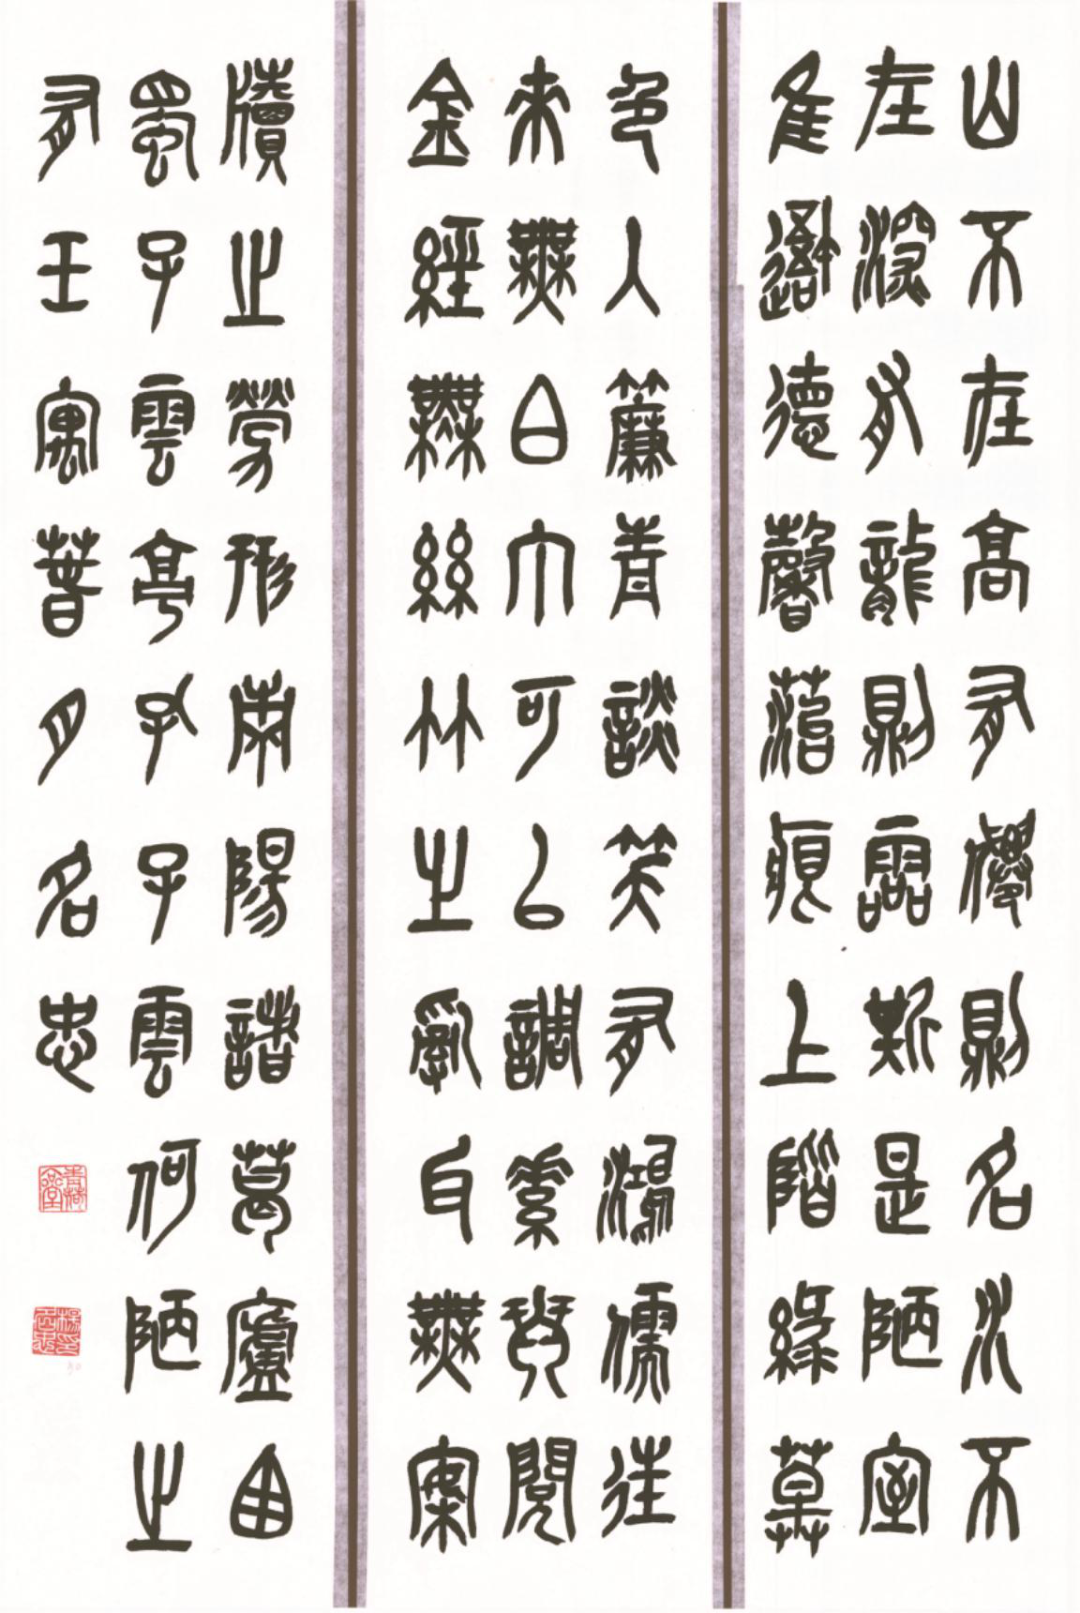 山不在高有僊則名水不
在深有龍則靈斯是陋室
隹吾德馨菭痕上階綠草
色人簾青談笑有鴻儒往
來無白丁可以調素琴閱
金經無絲竹之亂耳無案
牘之勞形南陽諸葛廬西
蜀子雲亭孔子雲何陋之
有壬寅春月名忠